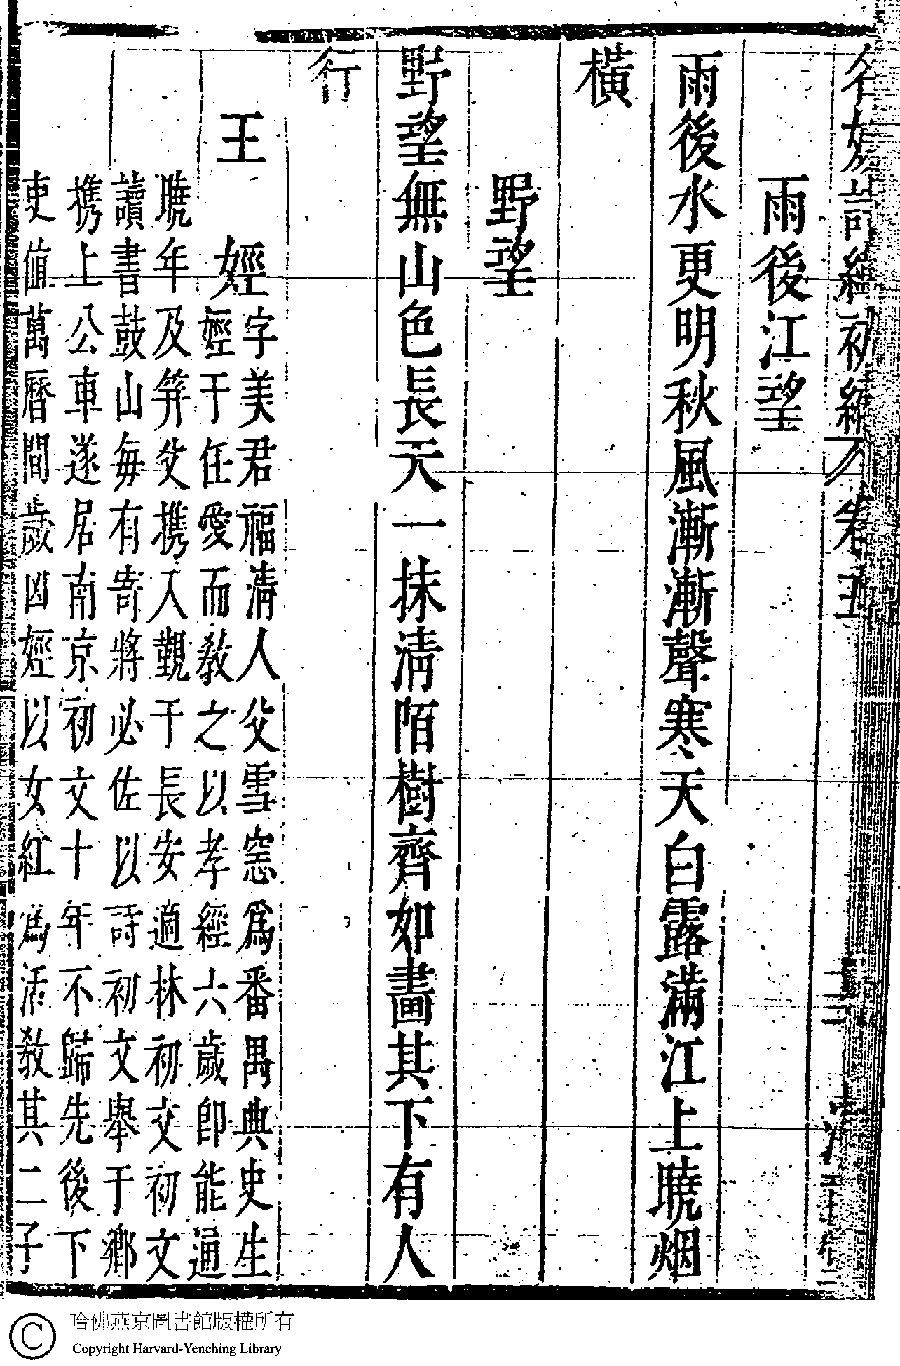 名媛詩緯初編 卷五
雨後江望
雨後水更明秋風漸漸聲寒天白露滿江上曉烟
橫
野望
野望無山色長天一抹清陌樹齊如畫其下有人
行
王娙字美君福清人父雪窓爲番禺典史生
娙于任愛而教之以孝經六歲即能通
曉年及笄父携入覲于長安適林初文初文
讀書鼓山每有寄將必佐以詩初文舉于鄉
携上公車遂居南京初文十年不歸先後下
吏值萬曆間歲凶娙以女紅爲活教其二子
哈佛燕京圖書館版權所有
© Copyright Harvard-Yenching Library